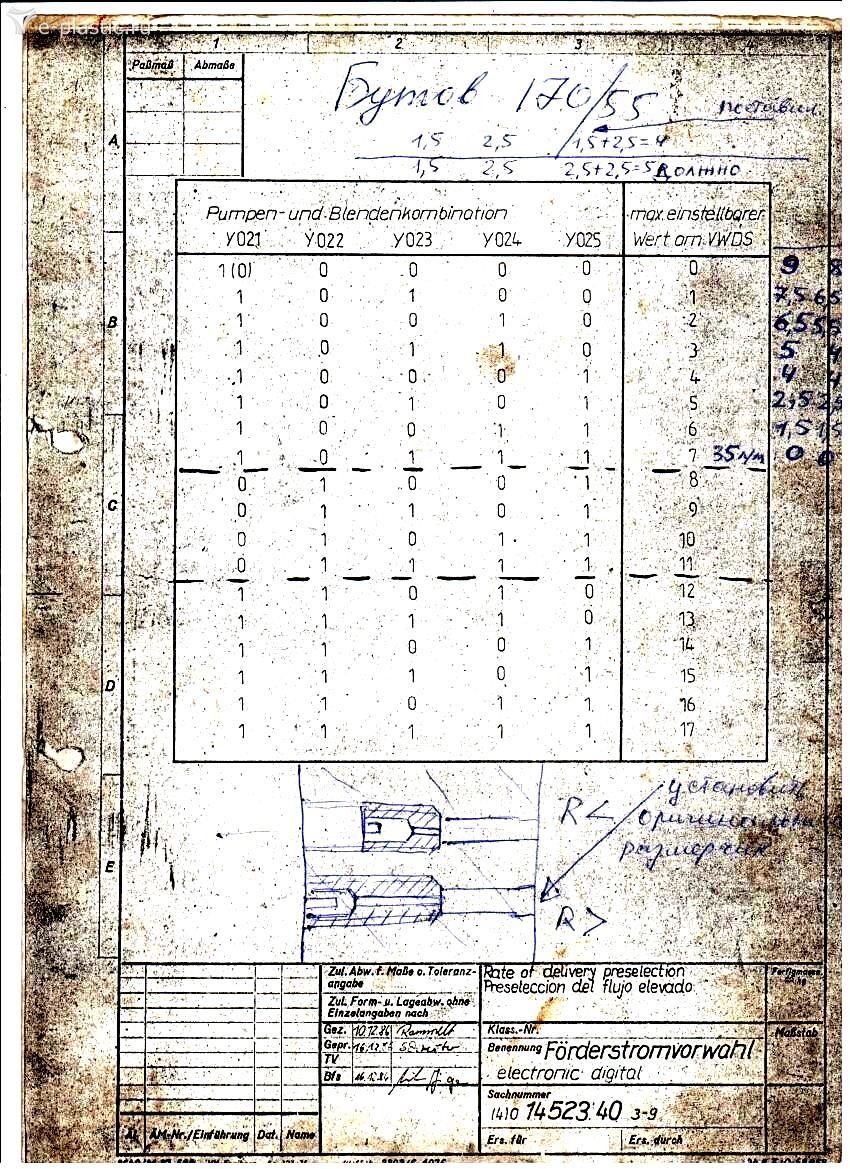 e-plastic.ru
1 2 3 4
Paßmaß Abmaße
Бутов 170/55 поставил
1,5 2,5 1,5+2,5=4
1,5 2,5 2,5+2,5=5 Должно
A
Pumpen-und Blendenkombination max. einstellbarer
Y021 Y022 Y023 Y024 Y025 Wert am VWDS
1(0) 0 0 0 0 0 9 8
1 0 1 0 0 1 7,5 6,5
B
1 0 0 1 0 2 6,5 5,5
1 0 1 1 0 3 5 4
1 0 0 0 1 4 4 4
1 0 1 0 1 5 2,5 2,5
1 0 0 1 1 6 1,5 1,5
1 0 1 1 1 7 35 л/m 0 0
0 1 0 0 1 8
C
0 1 1 0 1 9
0 1 0 1 1 10
0 1 1 1 1 11
1 1 0 1 0 12
1 1 1 1 0 13
1 1 0 0 1 14
D
1 1 1 0 1 15
1 1 0 1 1 16
1 1 1 1 1 17
установил
R< оригинальн
размерчик
E
R>
Zul. Abw. f. Maße o. Toleranz-
angabe
Zul. Form- u. Lageabw. ohne
Einzelangaben nach
Rate of delivery preselection
Preseleccion del flujo elevado
Gez. 10.12.86
Gepr.
TV
Bfs
Klass.-Nr.
Maßstab
Benennung Förderstromvorwahl
electronic digital
Sachnummer
(4)0 14523.40 3-9
Ers. für Ers. durch
ÄI. ÄM-Nr./Einführung Dat. Name